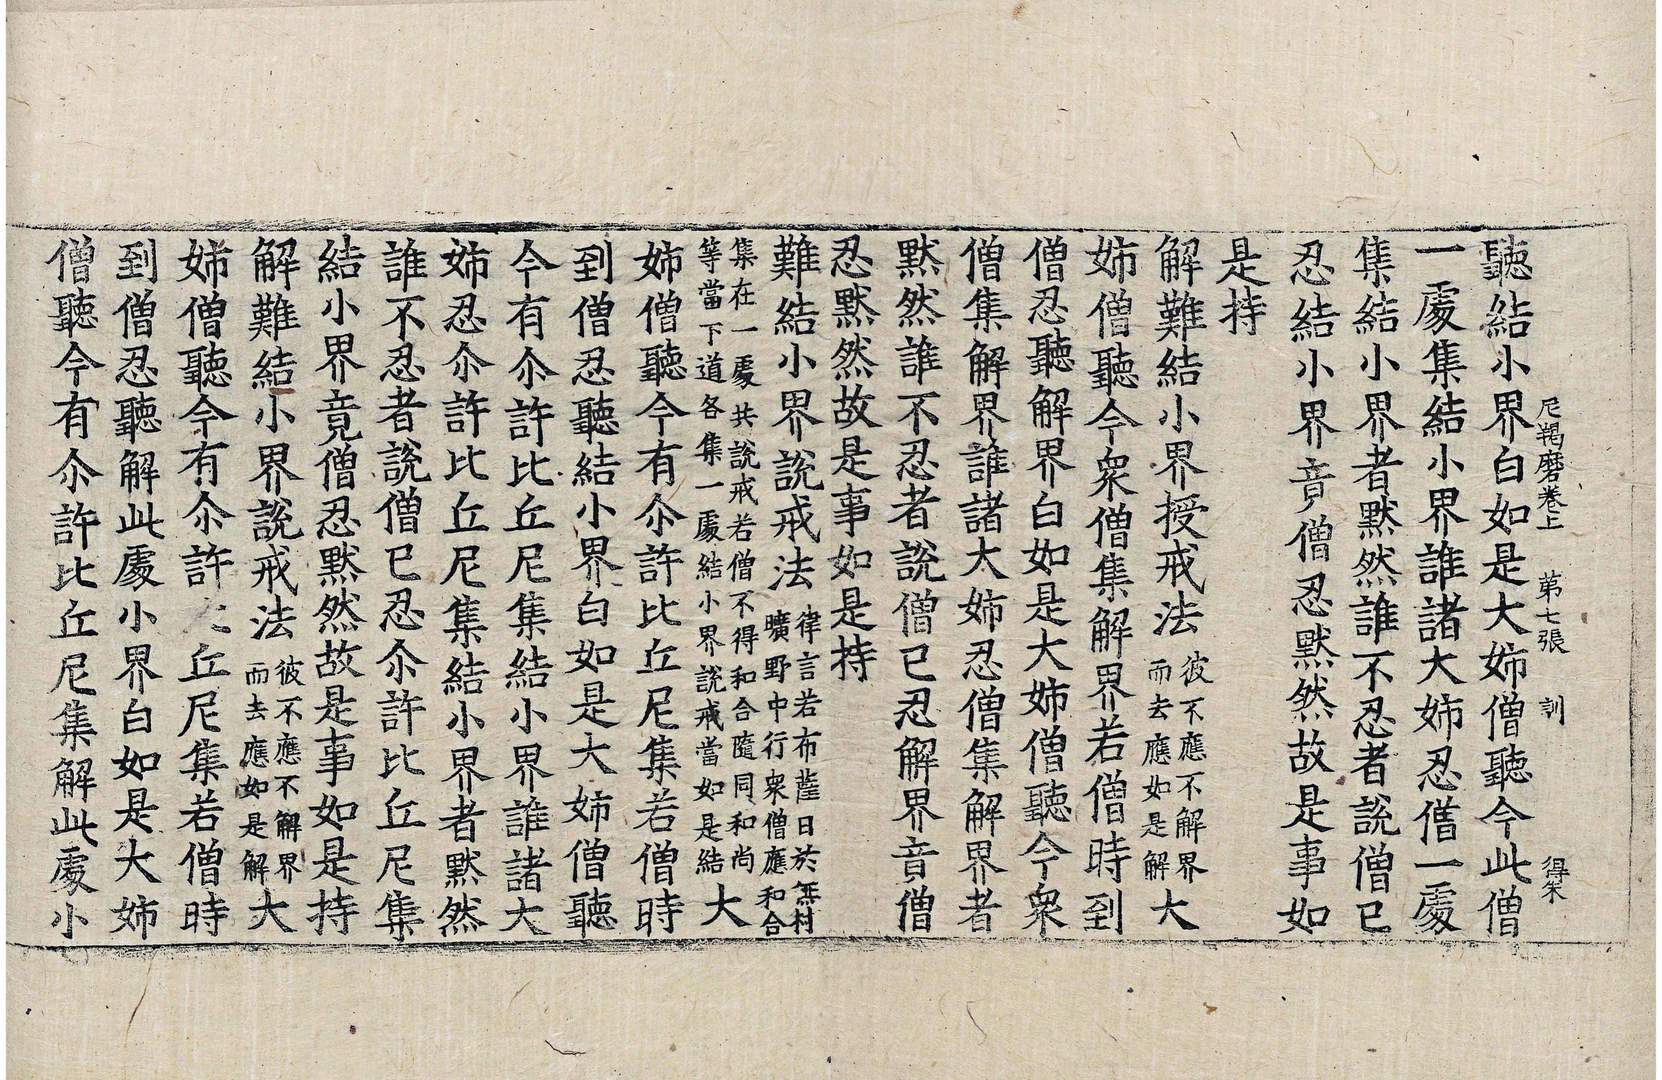 尼羯磨卷上　第七張　訓　得朱
聽結小界白如是大姊僧聽今此僧
一處集結小界誰諸大姊忍僧一處
集結小界者默然誰不忍者說僧已
忍結小界竟僧忍默然故是事如
是持
解難結小界授戒法彼不應不解界而去應如是解大
姊僧聽今衆僧集解界若僧時到
僧忍聽解界白如是大姊僧聽今衆
僧集解界誰諸大姊忍僧集解界者
默然誰不忍者說僧已忍解界竟僧
忍默然故是事如是持
難結小界說戒法律言若布薩日於無村曠野中行衆僧應和合
集在一處共說戒若僧不得和合隨同和尚等當下道各集一處結小界說戒當如是結大
姊僧聽今有尒許比丘尼集若僧時
到僧忍聽結小界白如是大姊僧聽
今有尒許比丘尼集結小界誰諸大
姊忍尒許比丘尼集結小界者默然
誰不忍者說僧已忍尒許比丘尼集
結小界竟僧忍默然故是事如是持
解難結小界說戒法彼不應不解界而去應如是解大
姊僧聽今有尒許丘尼集若僧時
到僧忍聽解此處小界白如是大姊
僧聽今有尒許比丘尼集解此處小